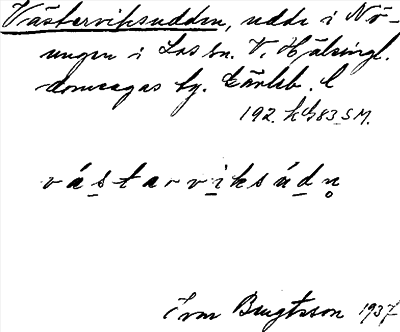 Västerviksudden, udde i Nö-
ungen i Los sn. V. Hälsingl.
domsagas tg. Gävleb. l
192. kg 83 S M.
vástarviksúdn̥
Ivar Bengtsson 1937